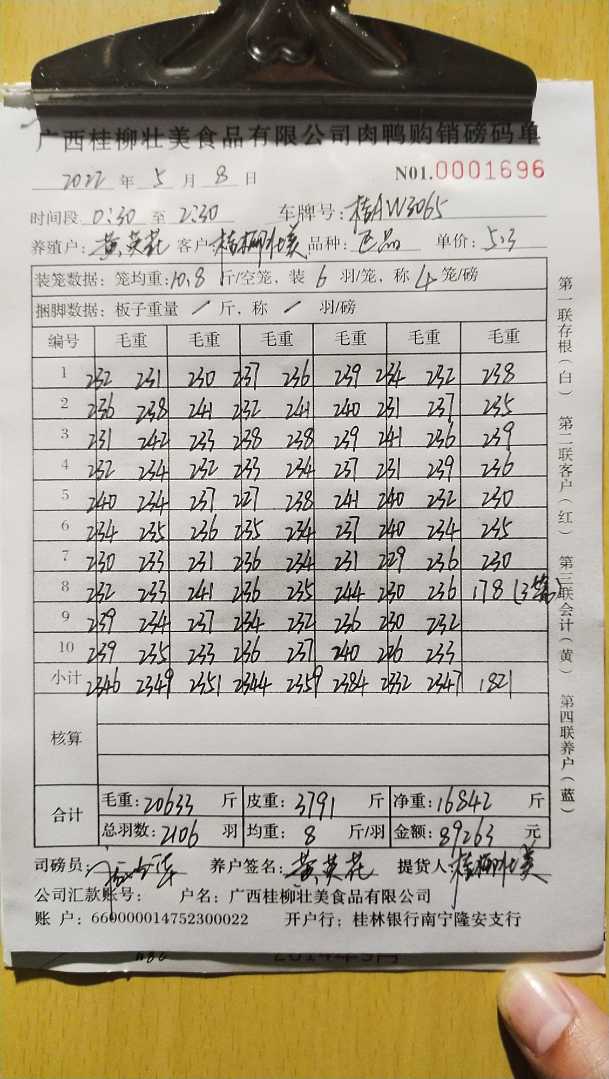 广西桂柳壮美食品有限公司肉鸭购销磅码单
2022 年 5 月 8 日 N01.0001696
时间段 0:30 至 2:30 车牌号:桂AW3065
养殖户:黄英花 客户:桂柳壮美 品种:正品 单价:5.3
装笼数据:笼均重:10.8 斤/空笼,装 6 羽/笼,称 4 笼/磅
捆脚数据:板子重量 / 斤,称 / 羽/磅
编号 毛重 毛重 毛重 毛重 毛重 毛重
1 232 231 230 237 236 239 234 232 238
2 236 238 241 232 241 240 231 237 235
3 231 242 233 238 238 239 241 236 239
4 232 234 232 233 234 237 231 239 236
5 240 234 237 227 238 241 240 232 230
6 234 235 236 235 234 237 240 234 235
7 230 233 231 236 234 231 229 236 230
8 232 233 241 236 235 244 230 236 178 (3笼)
9 239 234 237 234 232 236 230 232
10 239 235 233 236 237 240 226 233
小计 2346 2349 2351 2344 2359 2384 2332 2347 1821
核算
合计
毛重:20633 斤 皮重:3791 斤 净重:16842 斤
总羽数:2106 羽 均重:8 斤/羽 金额:89263 元
司磅员: 养户签名:黄英花 提货人:桂柳壮美
公司汇款账号: 户名:广西桂柳壮美食品有限公司
账 户:660000014752300022 开户行:桂林银行南宁隆安支行
第一联存根(白) 第二联客户(红) 第三联会计(黄) 第四联养户(蓝)